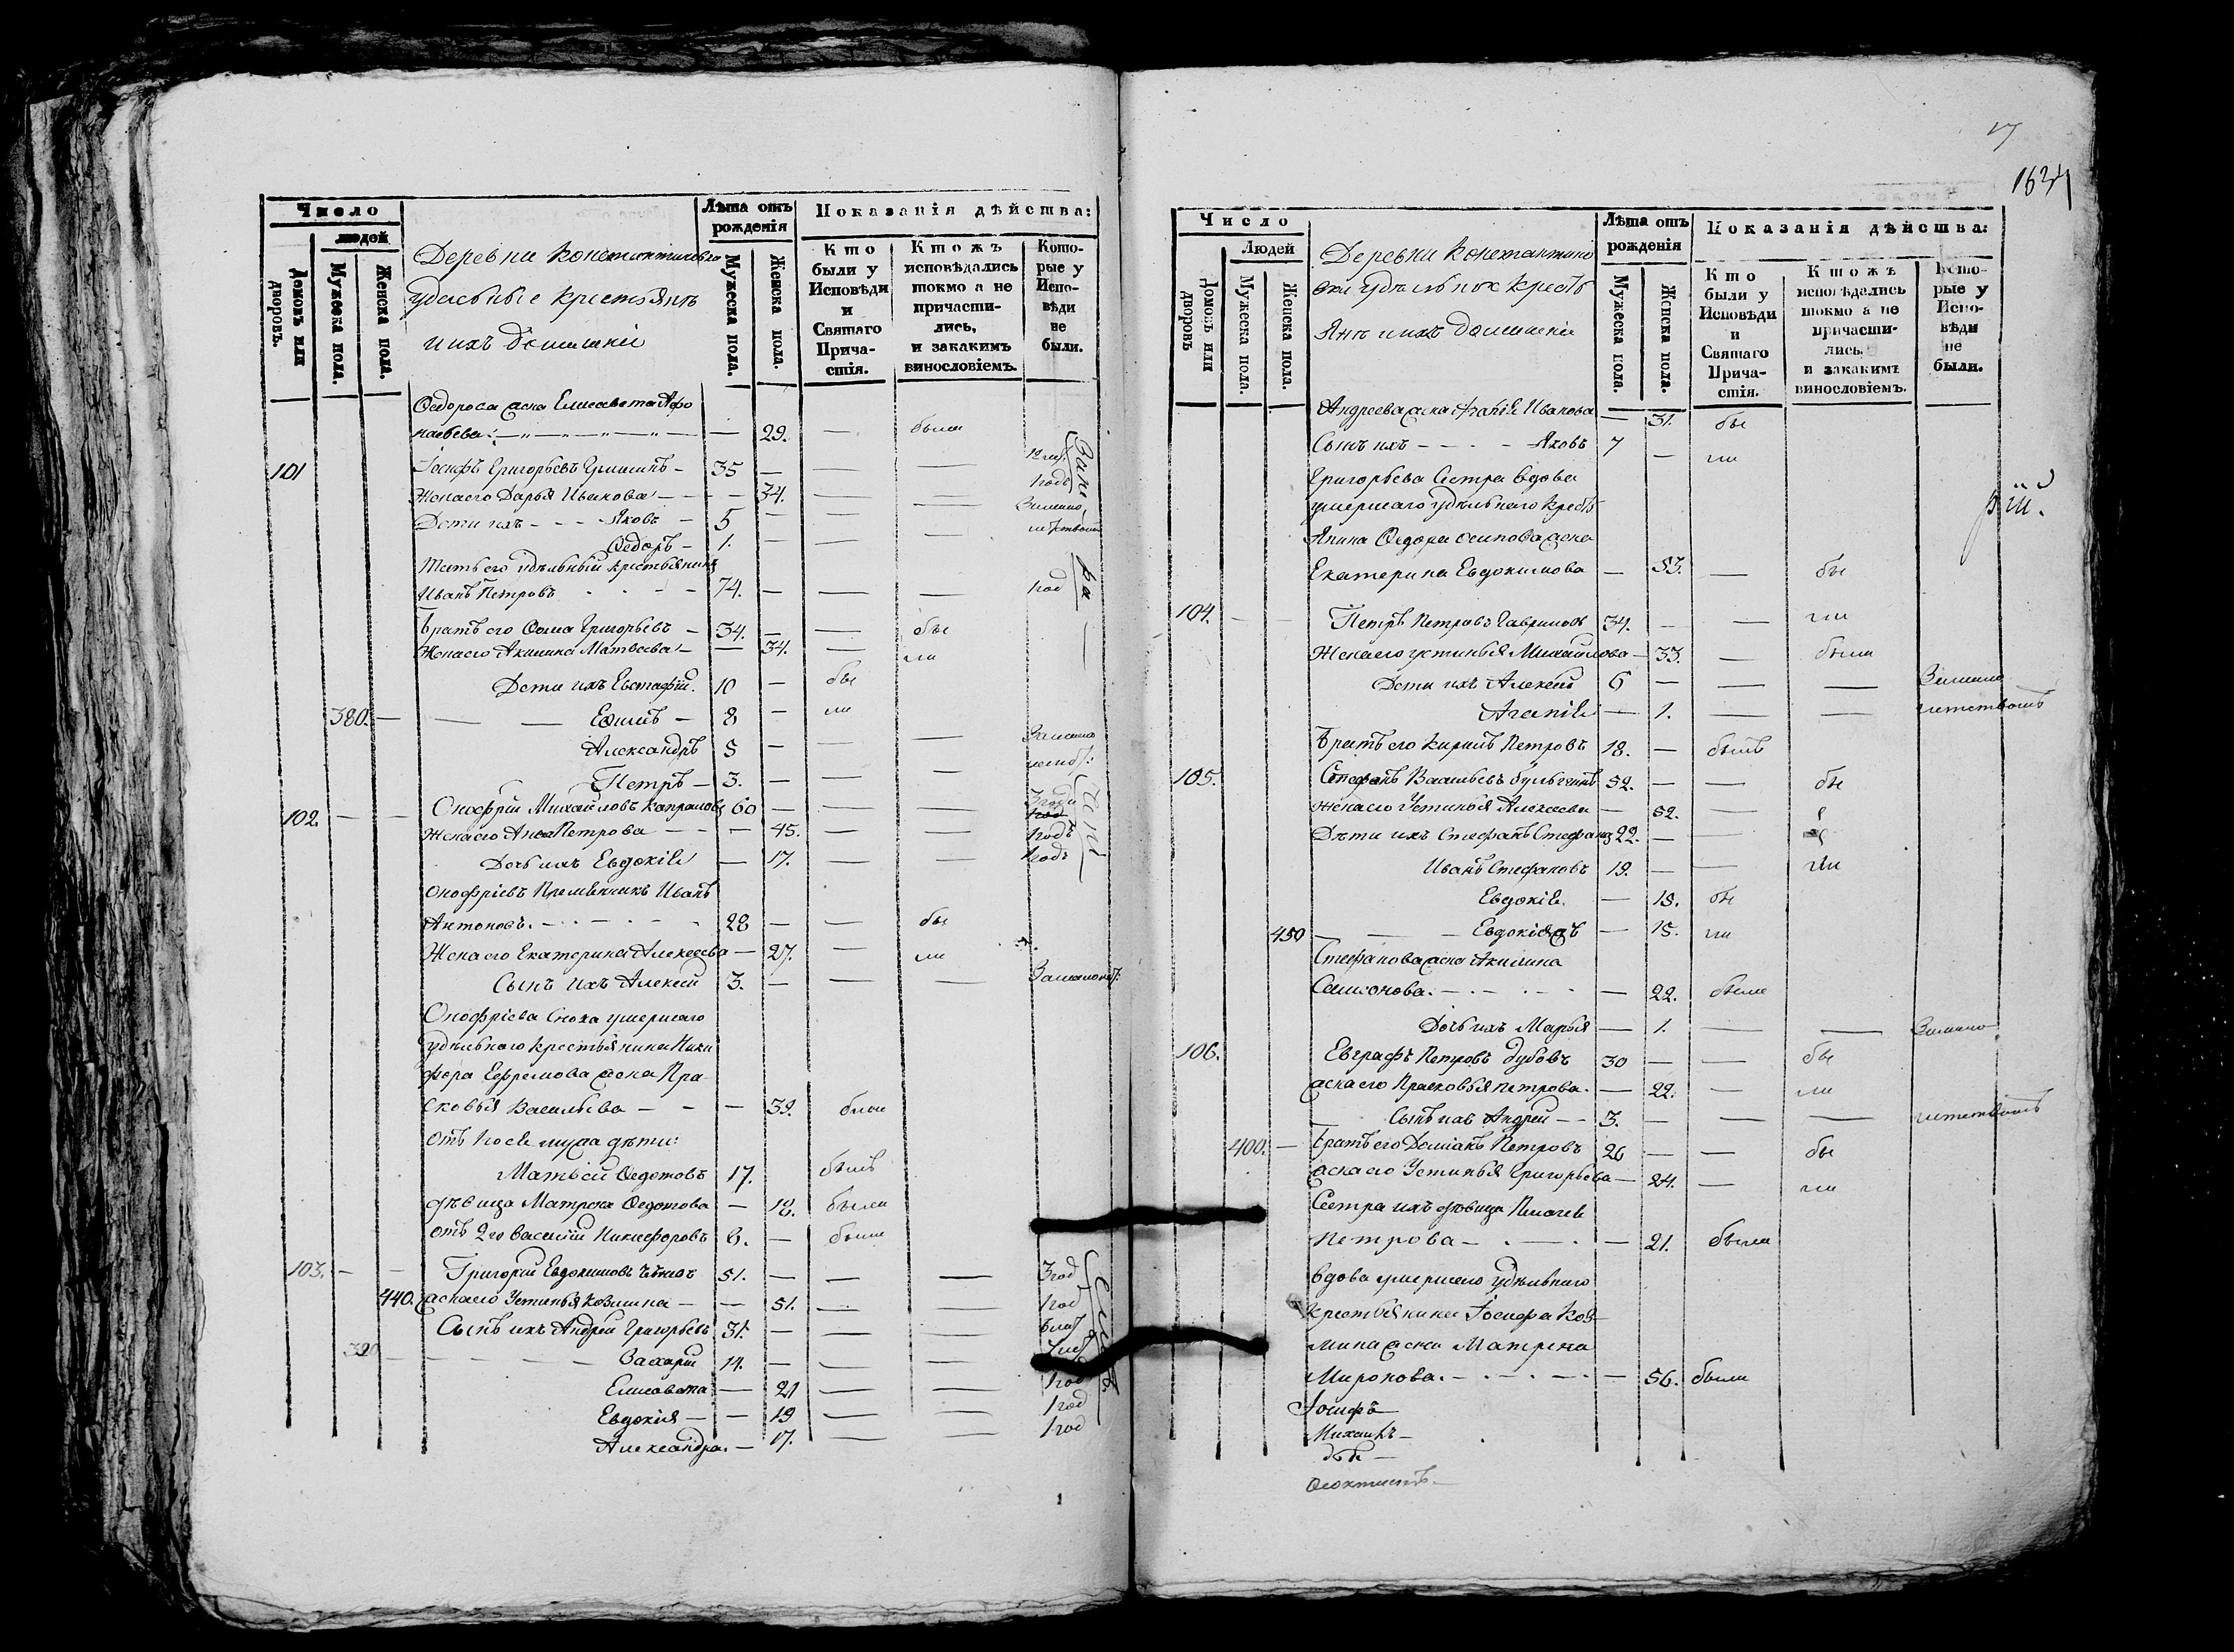 Число
людей
Домовъ или дворовъ.
Мужеска пола.
Женска пола.
Деревни Константиновка
удѣльные крестьянѣ
и ихъ домашніи
Лѣта отъ рожденія
Мужеска пола.
Женска пола.
Показанія дѣйства:
Кто были у Исповѣди и Святаго Причастія.
Ктожъ исповѣдались токмо а не причастились, и закакимъ винословіемъ.
Которые у Исповѣди не были.
Ѳедорова жена Елисавета Афо
насьева: — — 29. — были
101 Іосифъ Григорьевъ — 35 — — —
Жена его Дарья Ивановна — — 34. — — 1 годъ
Дети ихъ - - - Яковъ — 5 — — — Замало
Ѳедоръ — 1. — — — летствомъ
Тесть его удѣльный крестьянинъ
Иванъ Петровъ 74. — — — 1 год
Братъ его Ѳома Григорьевъ — 34. — — бы
Жена его Акилина Матвеева — — 34. — ли
Дети ихъ Евстафій. 10 — бы
380. — — — Ефимъ — 8 — ли
Александръ 5 — — — Замало
Петръ — 3. — — —
102. — — Онофрій Михайловъ Капраловъ 60 — — — 3 года
Жена его Анна Петрова — — — 45. — — 1 годъ
Дочь ихъ Евдокія — 17. — — 1 годъ
Онофріевъ Племянникъ Иванъ
Антоновъ. — 28 — — бы
Жена его Екатерина Алексеева — 27. — ли
Сынъ ихъ Алексей 3. — — —
Онофріева Сноха умершаго
удѣльнаго крестьянина Ники
фора Ефремова жена Пра
сковья Васильева — — — 39. была
отъ 1го ея мужа дѣти:
Матвей Ѳедотовъ 17. былъ
дѣвица Матрена Ѳедотова — 18. была
отъ 2го Василій Никифоровъ 8. — былъ
103. — — Григорій Евдокимовъ 51. — — — 3 год
440. жена его Устинья Козмина — — 51. — — 1 год
Сынъ ихъ Андрей Григорьевъ 31. — — —
390 — — Захарій 14. — — —
Елисавета — 21 — — 1 год
Евдокія — — 19 — — 1 год
Александра. — 17. — — 1 год
17
1634
Число
Людей
Домовъ или дворовъ
Мужеска пола.
Женска пола.
Деревни Константино
вки удѣльныхъ кресть
янъ и ихъ домашніи
Лѣта отъ рожденія
Мужеска пола.
Женска пола.
Показанія дѣйства:
Кто были у Исповѣди и Святаго Причастія.
Ктожъ исповѣдались токмо а не причастились, и закакимъ винословіемъ.
Которые у Исповѣди не были.
Андреева жена Агапія Иванова — 31. бы
Сынъ ихъ - - - - Яковъ 7 — ли
Григорьева Сестра вдова
умершаго удѣльнаго кресть
янина Ѳедора Осипова жена
Екатерина Евдокимова — 53. — бы
104. — — Петръ Петровъ Гавриловъ 34. — — ли
Жена его Устинья Михайлова — 33. — были
Дети ихъ Алексей 6 — — — Замало
Агапія — 1. — — летствомъ
Братъ его Кирилъ Петровъ 18. — былъ
105. Стефанъ Васильевъ 52. — — бы
жена его Устинья Алексеева — 52. —
Дѣти ихъ Стефанъ Стефановъ 22. — —
Иванъ Стефановъ 19. — — ли
Евдокія. — 18. бы
450 — — — Евдокія — 15. ли
Стефанова жена Акилина
Самсонова. — 22. была
Дочь ихъ Марья — 1. — — Замало
106. Евграфъ Петровъ Дубовъ 30 — — бы
жена его Прасковья Петрова. — 22. — ли
Сынъ ихъ Андрей — — 3. — — — летствомъ
400. — Братъ его Доміанъ Петровъ 26 — — бы
жена его Устинья Григорьева — 24. — ли
Сестра ихъ дѣвица Пелагея
Петрова — — 21. была
вдова умершаго удѣльнаго
крестьянина Іосифа Коз
мина жена Матрена
Миронова. — 56. была
Іосифъ —
Михаилъ —
Ѳеоктистъ —